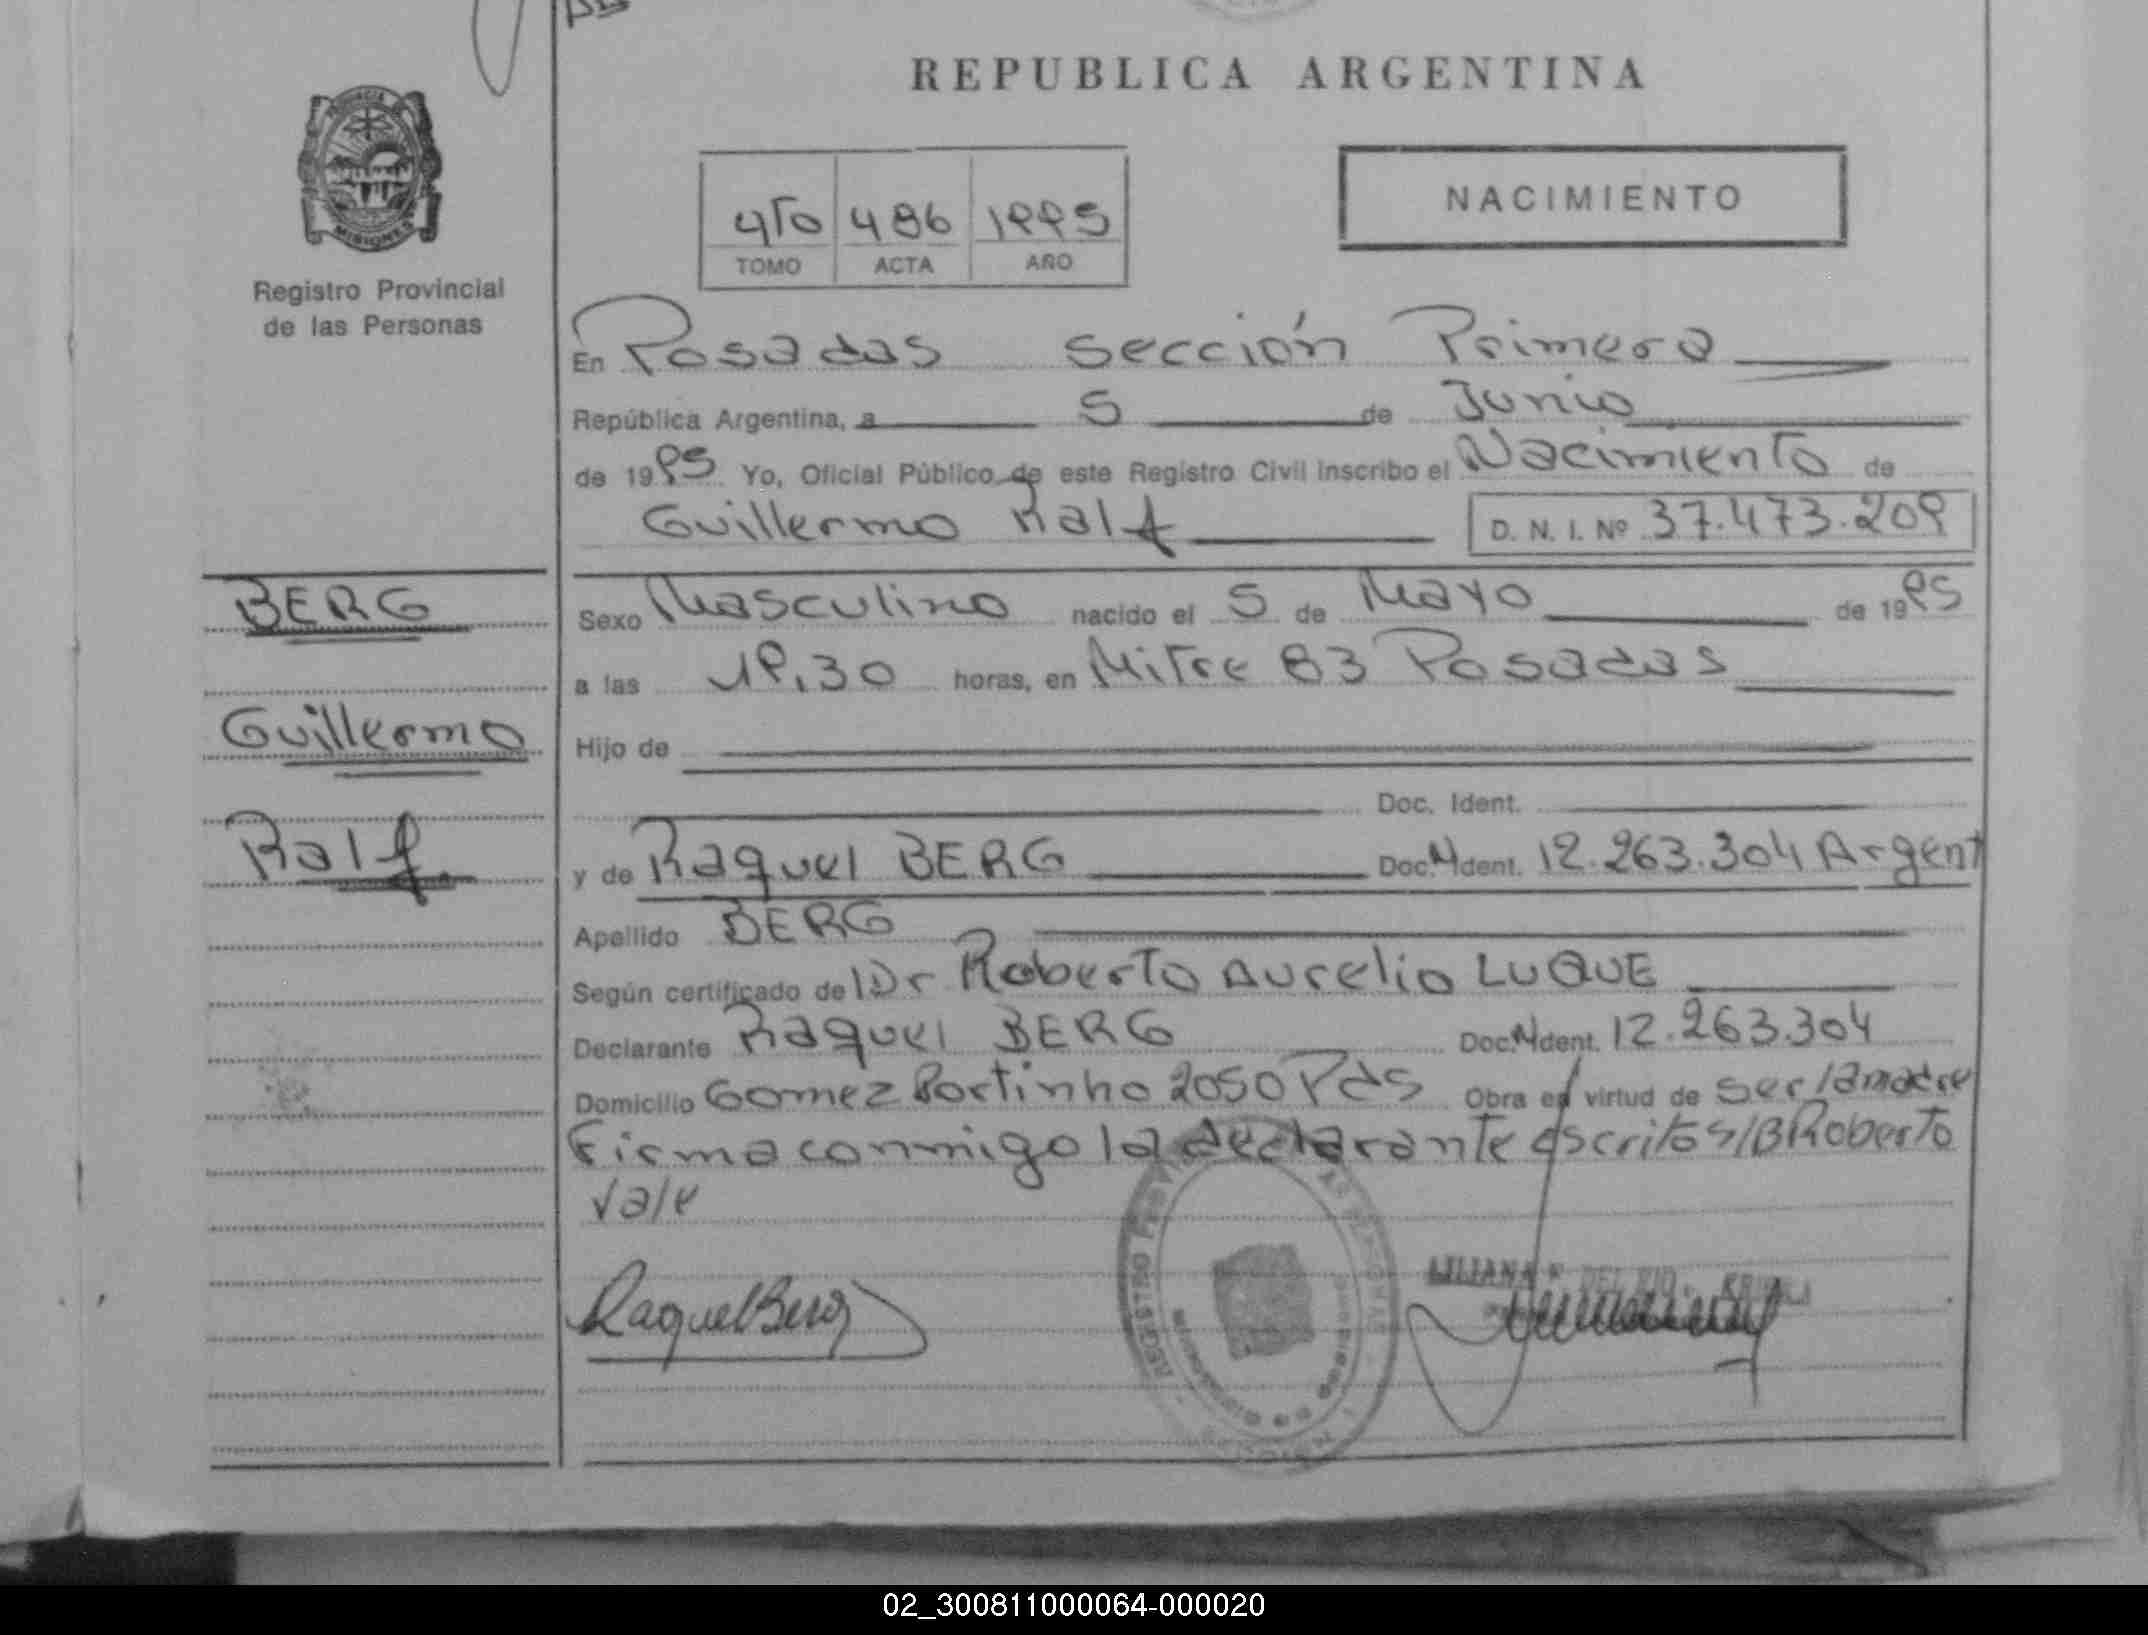 REPUBLICA ARGENTINA
PROVINCIA
MISIONES
Registro Provincial
de las Personas
4To 486 1995
TOMO ACTA AÑO
NACIMIENTO
En Posadas Sección Primera
República Argentina, a 5 de Junio
de 1995 Yo, Oficial Público de este Registro Civil inscribo el Nacimiento de
Guillermo Ralf D. N. I. Nº 37.473.209
BERG
Sexo Masculino nacido el 5 de Mayo de 1995
a las 19,30 horas, en Mitre 83 Posadas
Guillermo
Hijo de
Doc. Ident.
Ralf
y de Raquel BERG Doc. Ident. 12.263.304 Argent
Apellido BERG
Según certificado del Dr Roberto Aurelio LUQUE
Declarante Raquel BERG Doc. Ident. 12.263.304
Domicilio Gomez Portinho 2050 Pdas Obra en virtud de ser la madre
Firma conmigo la declarante escritos/B Roberto
Vale
Raquel Berg
LILIANA DEL RIO
02_300811000064-000020